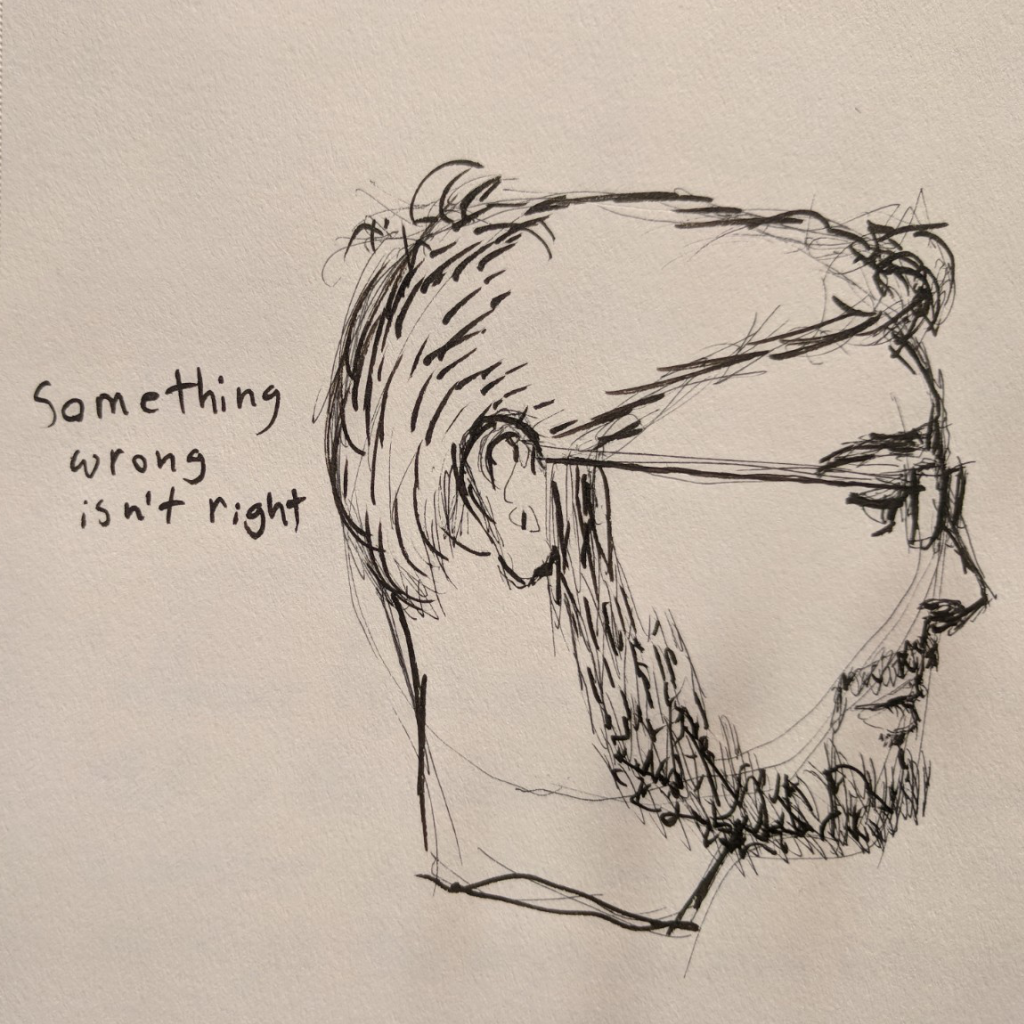 Something
wrong
isn't right